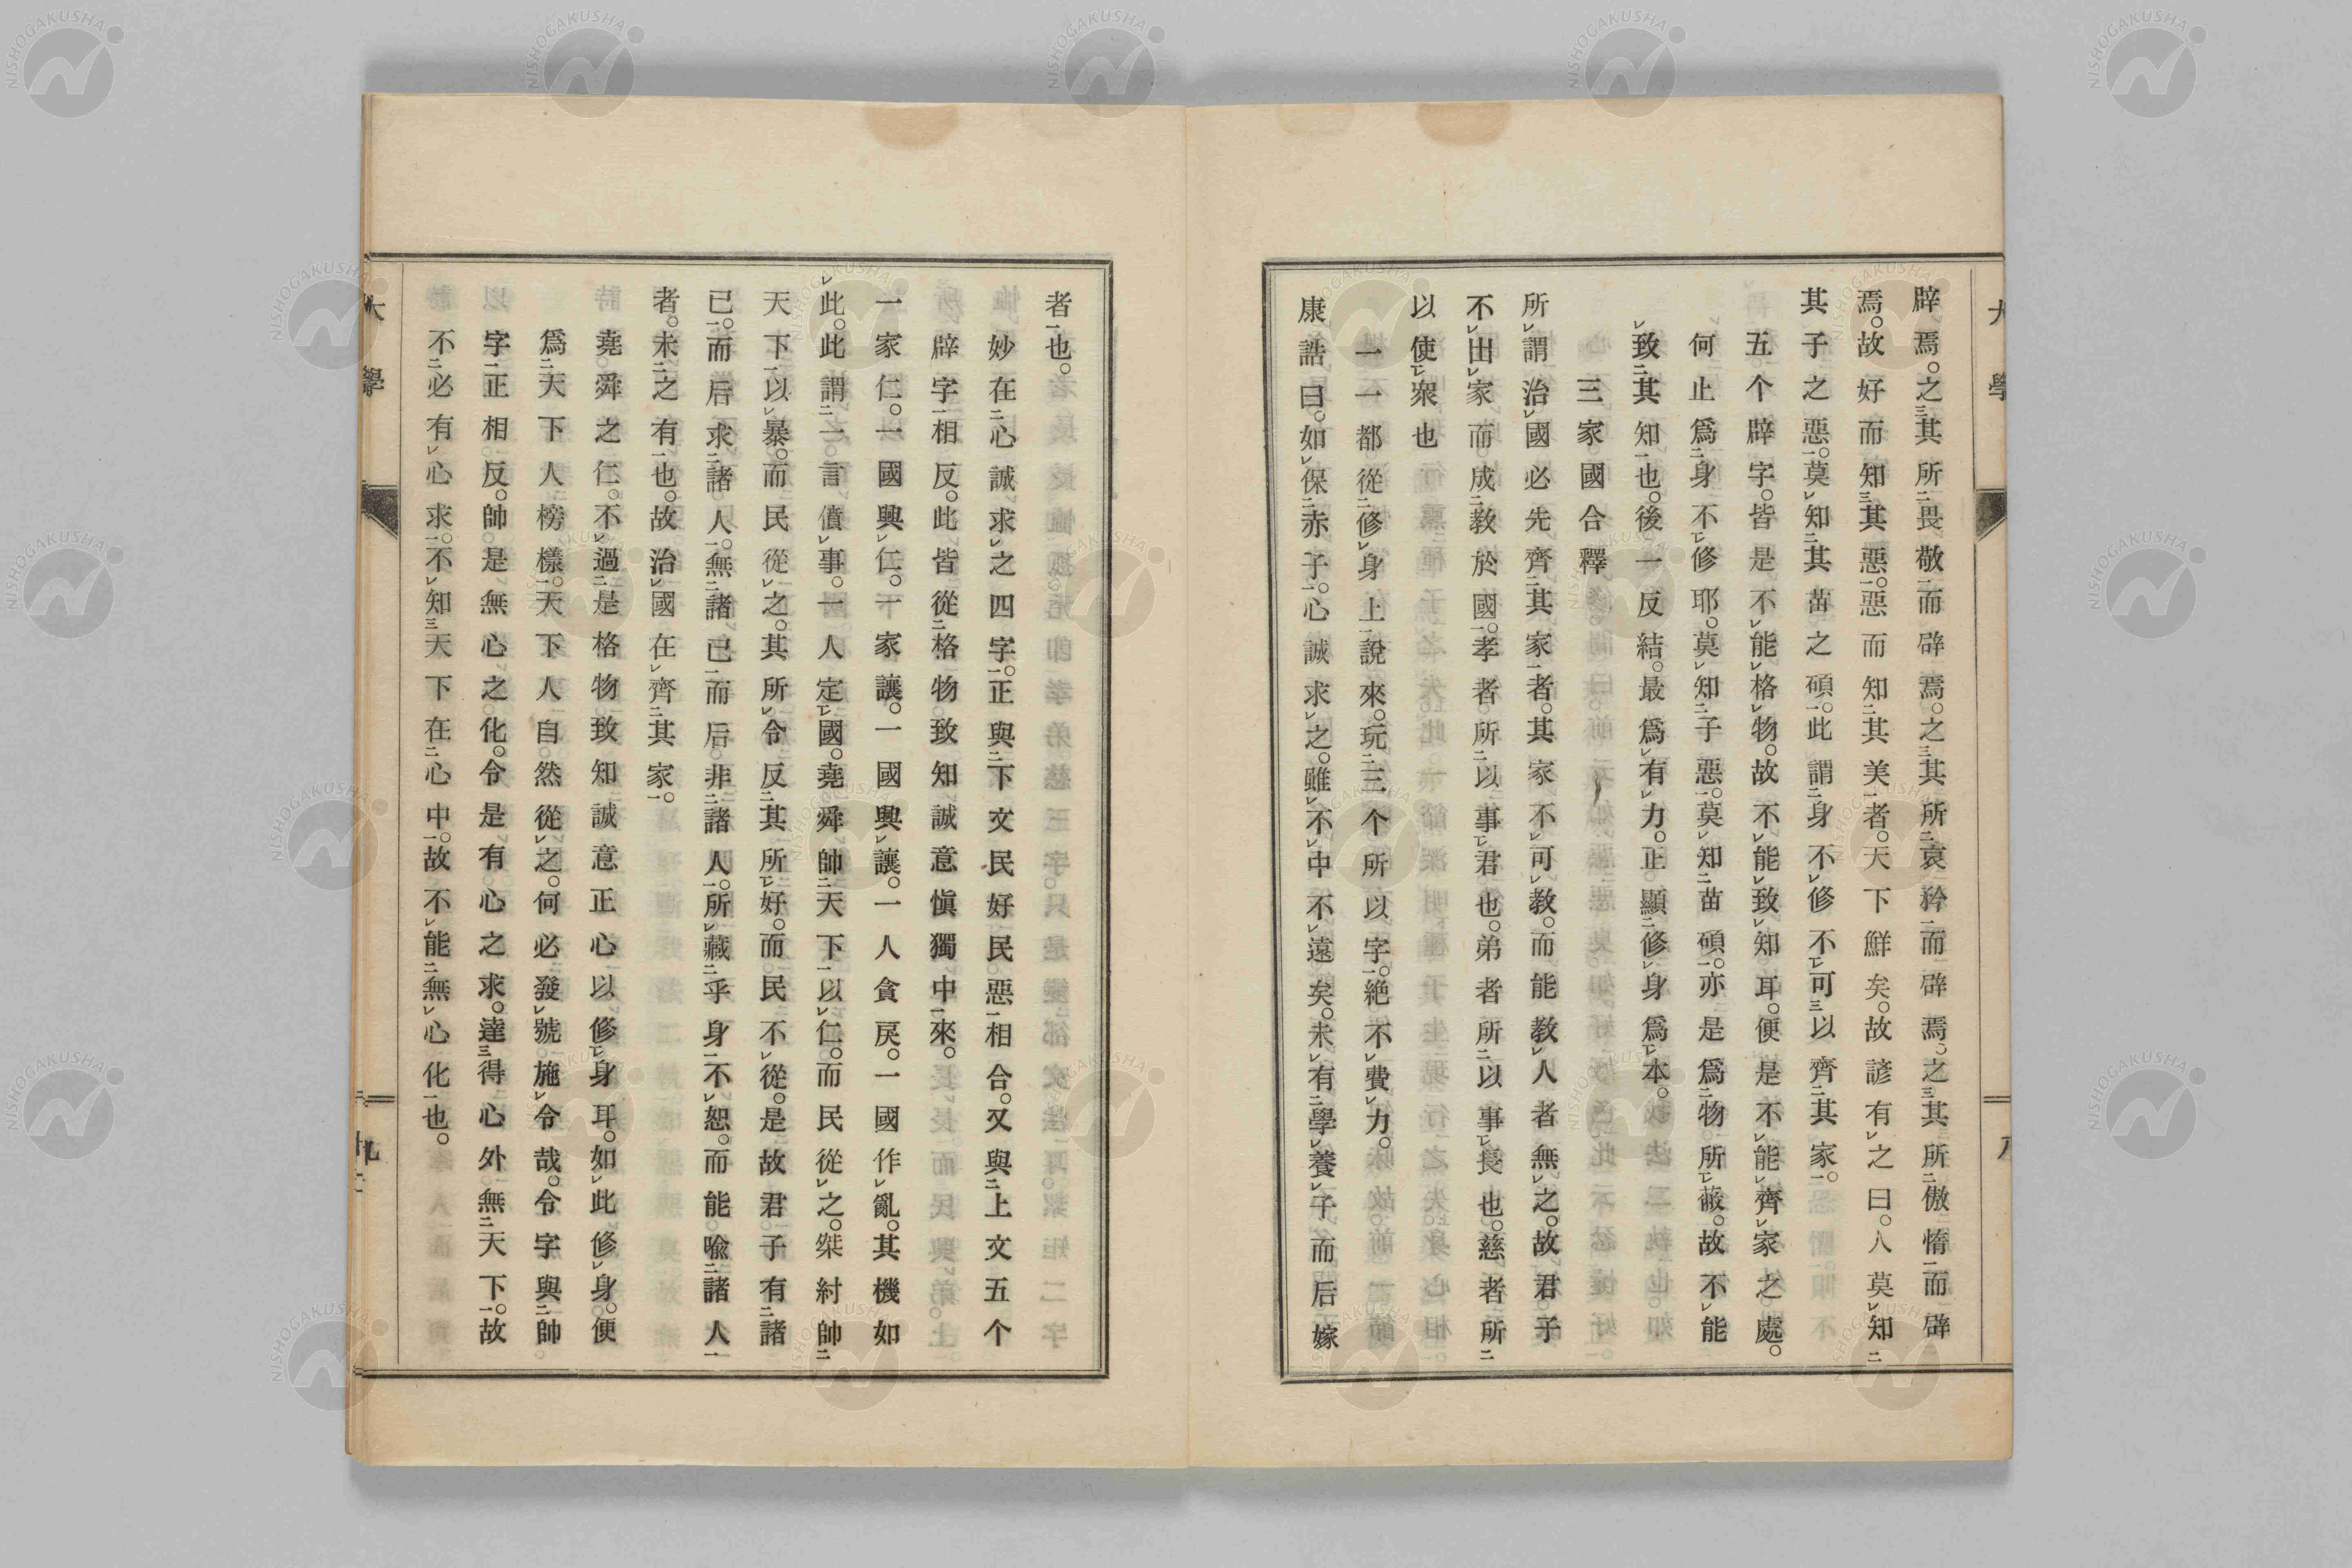 辟焉。之其所畏敬而辟焉。之其所哀矜而辟焉。之其所傲惰而辟
焉。故好而知其惡。惡而知其美者。天下鮮矣。故諺有之曰。人莫知
其子之惡。莫知其苗之碩。此謂身不修不可以齊其家。
五个辟字。皆是不能格物。故不能致知耳。便是不能齊家之處。
何止爲身不修耶。莫知子惡。莫知苗碩。亦是爲物所蔽。故不能
致其知也。後一反結。最爲有力。正顯修身爲本。
三家國合釋
所謂治國必先齊其家者。其家不可教。而能教人者無之。故君子
不出家而。成教於國。孝者所以事君也。弟者所以事長也。慈者所
以使衆也
一一都從修身上說來。玩三个所以字。絶不費力。
康誥曰。如保赤子。心誠求之。雖不中不遠矣。未有學養子而后嫁
者也。
妙在心誠求之四字。正與下文民好民惡相合。又與上文五个
辟字相反。此皆從格物致知誠意愼獨中來。
一家仁。一國興仁。一家讓。一國興讓。一人貪戾。一國作亂。其機如
此。此謂一言僨事。一人定國。堯舜帥天下以仁。而民從之。桀紂帥
天下以暴。而民從之。其所令反其所好。而民不從。是故君子有諸
已。而后求諸人。無諸已而后非諸人。所藏乎身不恕。而能喩諸人
者。未之有也。故治國在齊其家。
堯舜之仁。不過是格物致知誠意正心以修身耳。如此修身。便
爲天下人榜樣。天下人自然從之。何必發號施令哉。令字與帥
字正相反。帥是無心之化。令是有心之求。達得心外無天下。故
不必有心求。不知天下在心中。故不能無心化也。
大學
八
大學
九
NISHOGAKUSHA